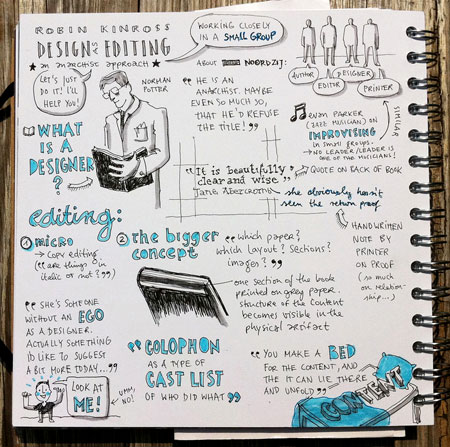 ROBIN KINROSS
DESIGN AS EDITING
* an anarchist approach *
WORKING CLOSELY
IN A SMALL GROUP
AUTHOR
EDITOR
DESIGNER
PRINTER
Let's just
do it! I'll
help you!
NORMAN
POTTER
WHAT
IS A
DESIGNER
?
ABOUT NOORDZIJ:
"HE IS AN
ANARCHIST. MAYBE
EVEN SO MUCH SO,
THAT HE'D REFUSE
THE TITLE!"
EVAN PARKER
(JAZZ MUSICIAN) ON
IMPROVISING
in small groups.
→ NO LEADER/LEADER IS
ONE OF THE MUSICIANS!
SIMILAR
"It is beautifully
clear and wise"
Jane Abercrombie
QUOTE ON BACK OF BOOK
she obviously hasn't
seen the return proof
HANDWRITTEN
NOTE BY
PRINTER
ON PROOF
(so much
on relation-
ship...)
editing:
1 micro
→ Copy editing
("are things in
italic or not?")
2 the bigger
concept
"which paper?
which layout? Sections?
images?"
one section of the book
printed on grey paper.
structure of the content
becomes visible in the
physical artifact
"SHE'S SOMEONE
WITHOUT AN EGO
AS A DESIGNER.
ACTUALLY SOMETHING
I'D LIKE TO SUGGEST
A BIT MORE TODAY..."
LOOK AT
ME!
UMM,
NO!
"COLOPHON
AS A TYPE OF
CAST LIST
OF WHO DID WHAT"
"YOU MAKE A BED
FOR THE CONTENT, AND
THE IT CAN LIE THERE
AND UNFOLD"
CONTENT